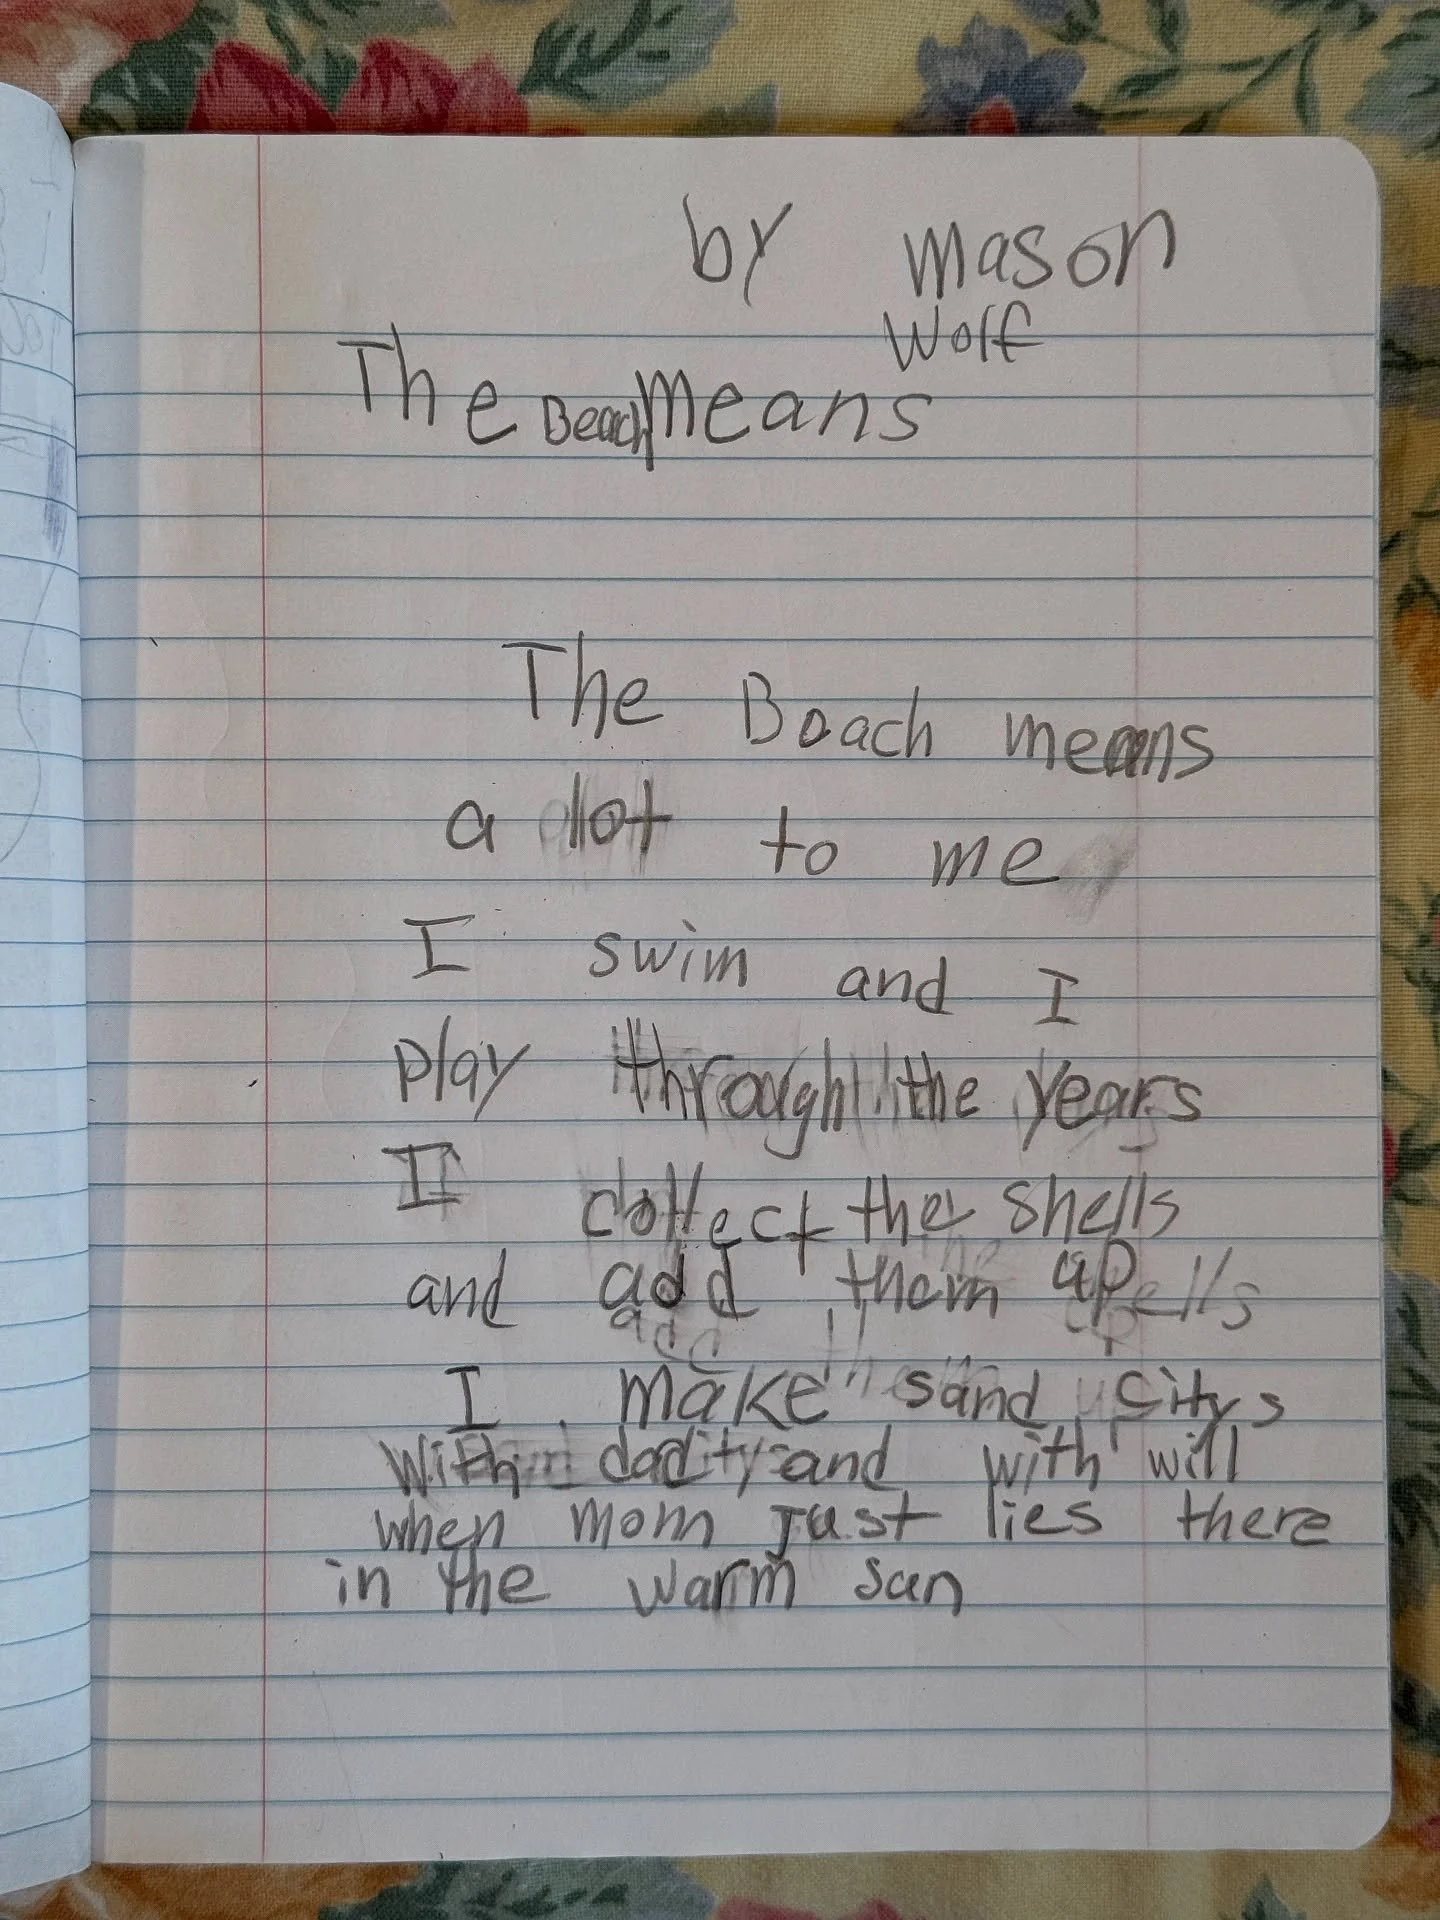 by mason
Wolf
The Beach means
The Beach means
a lot to me
I swim and I
play through the years
I collect the shells
and add them up
I make sand citys
with daddy and with will
when mom just lies there
in the warm sun